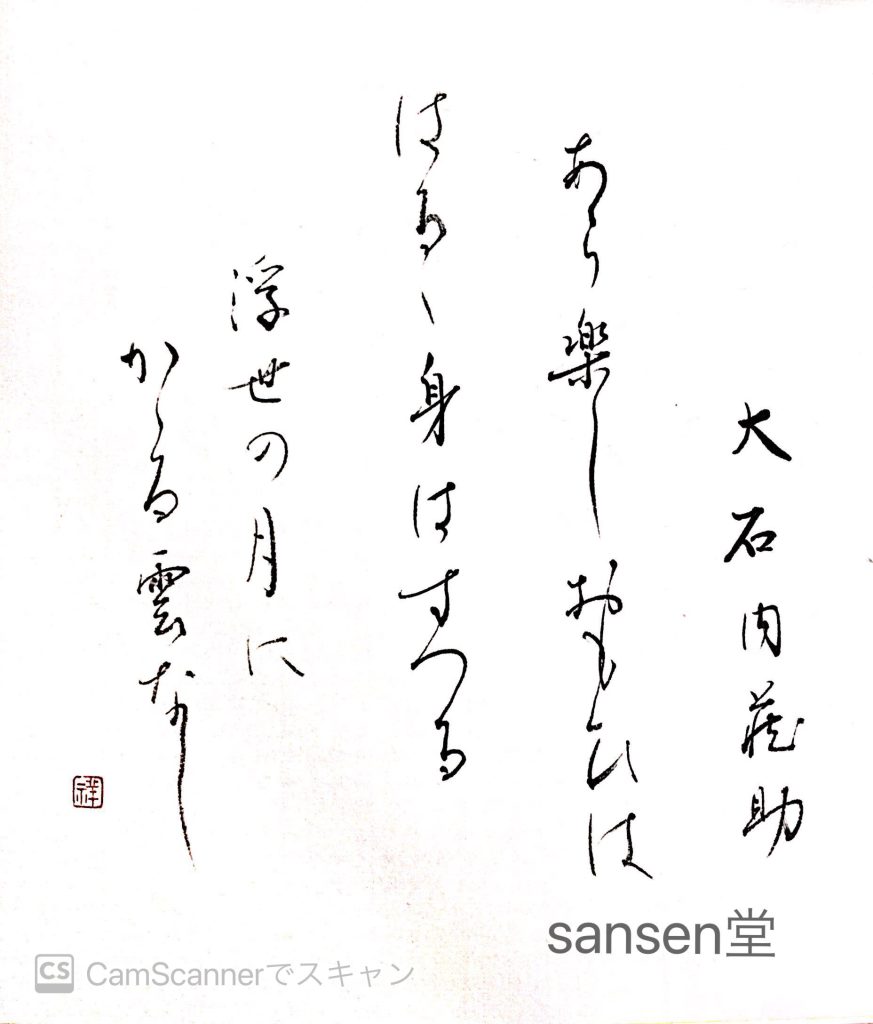 大石内蔵助
あら楽しおもひは
はるゝ身はすつる
浮世の月に
かゝる雲なし
祥
sansen堂
CS CamScannerでスキャン